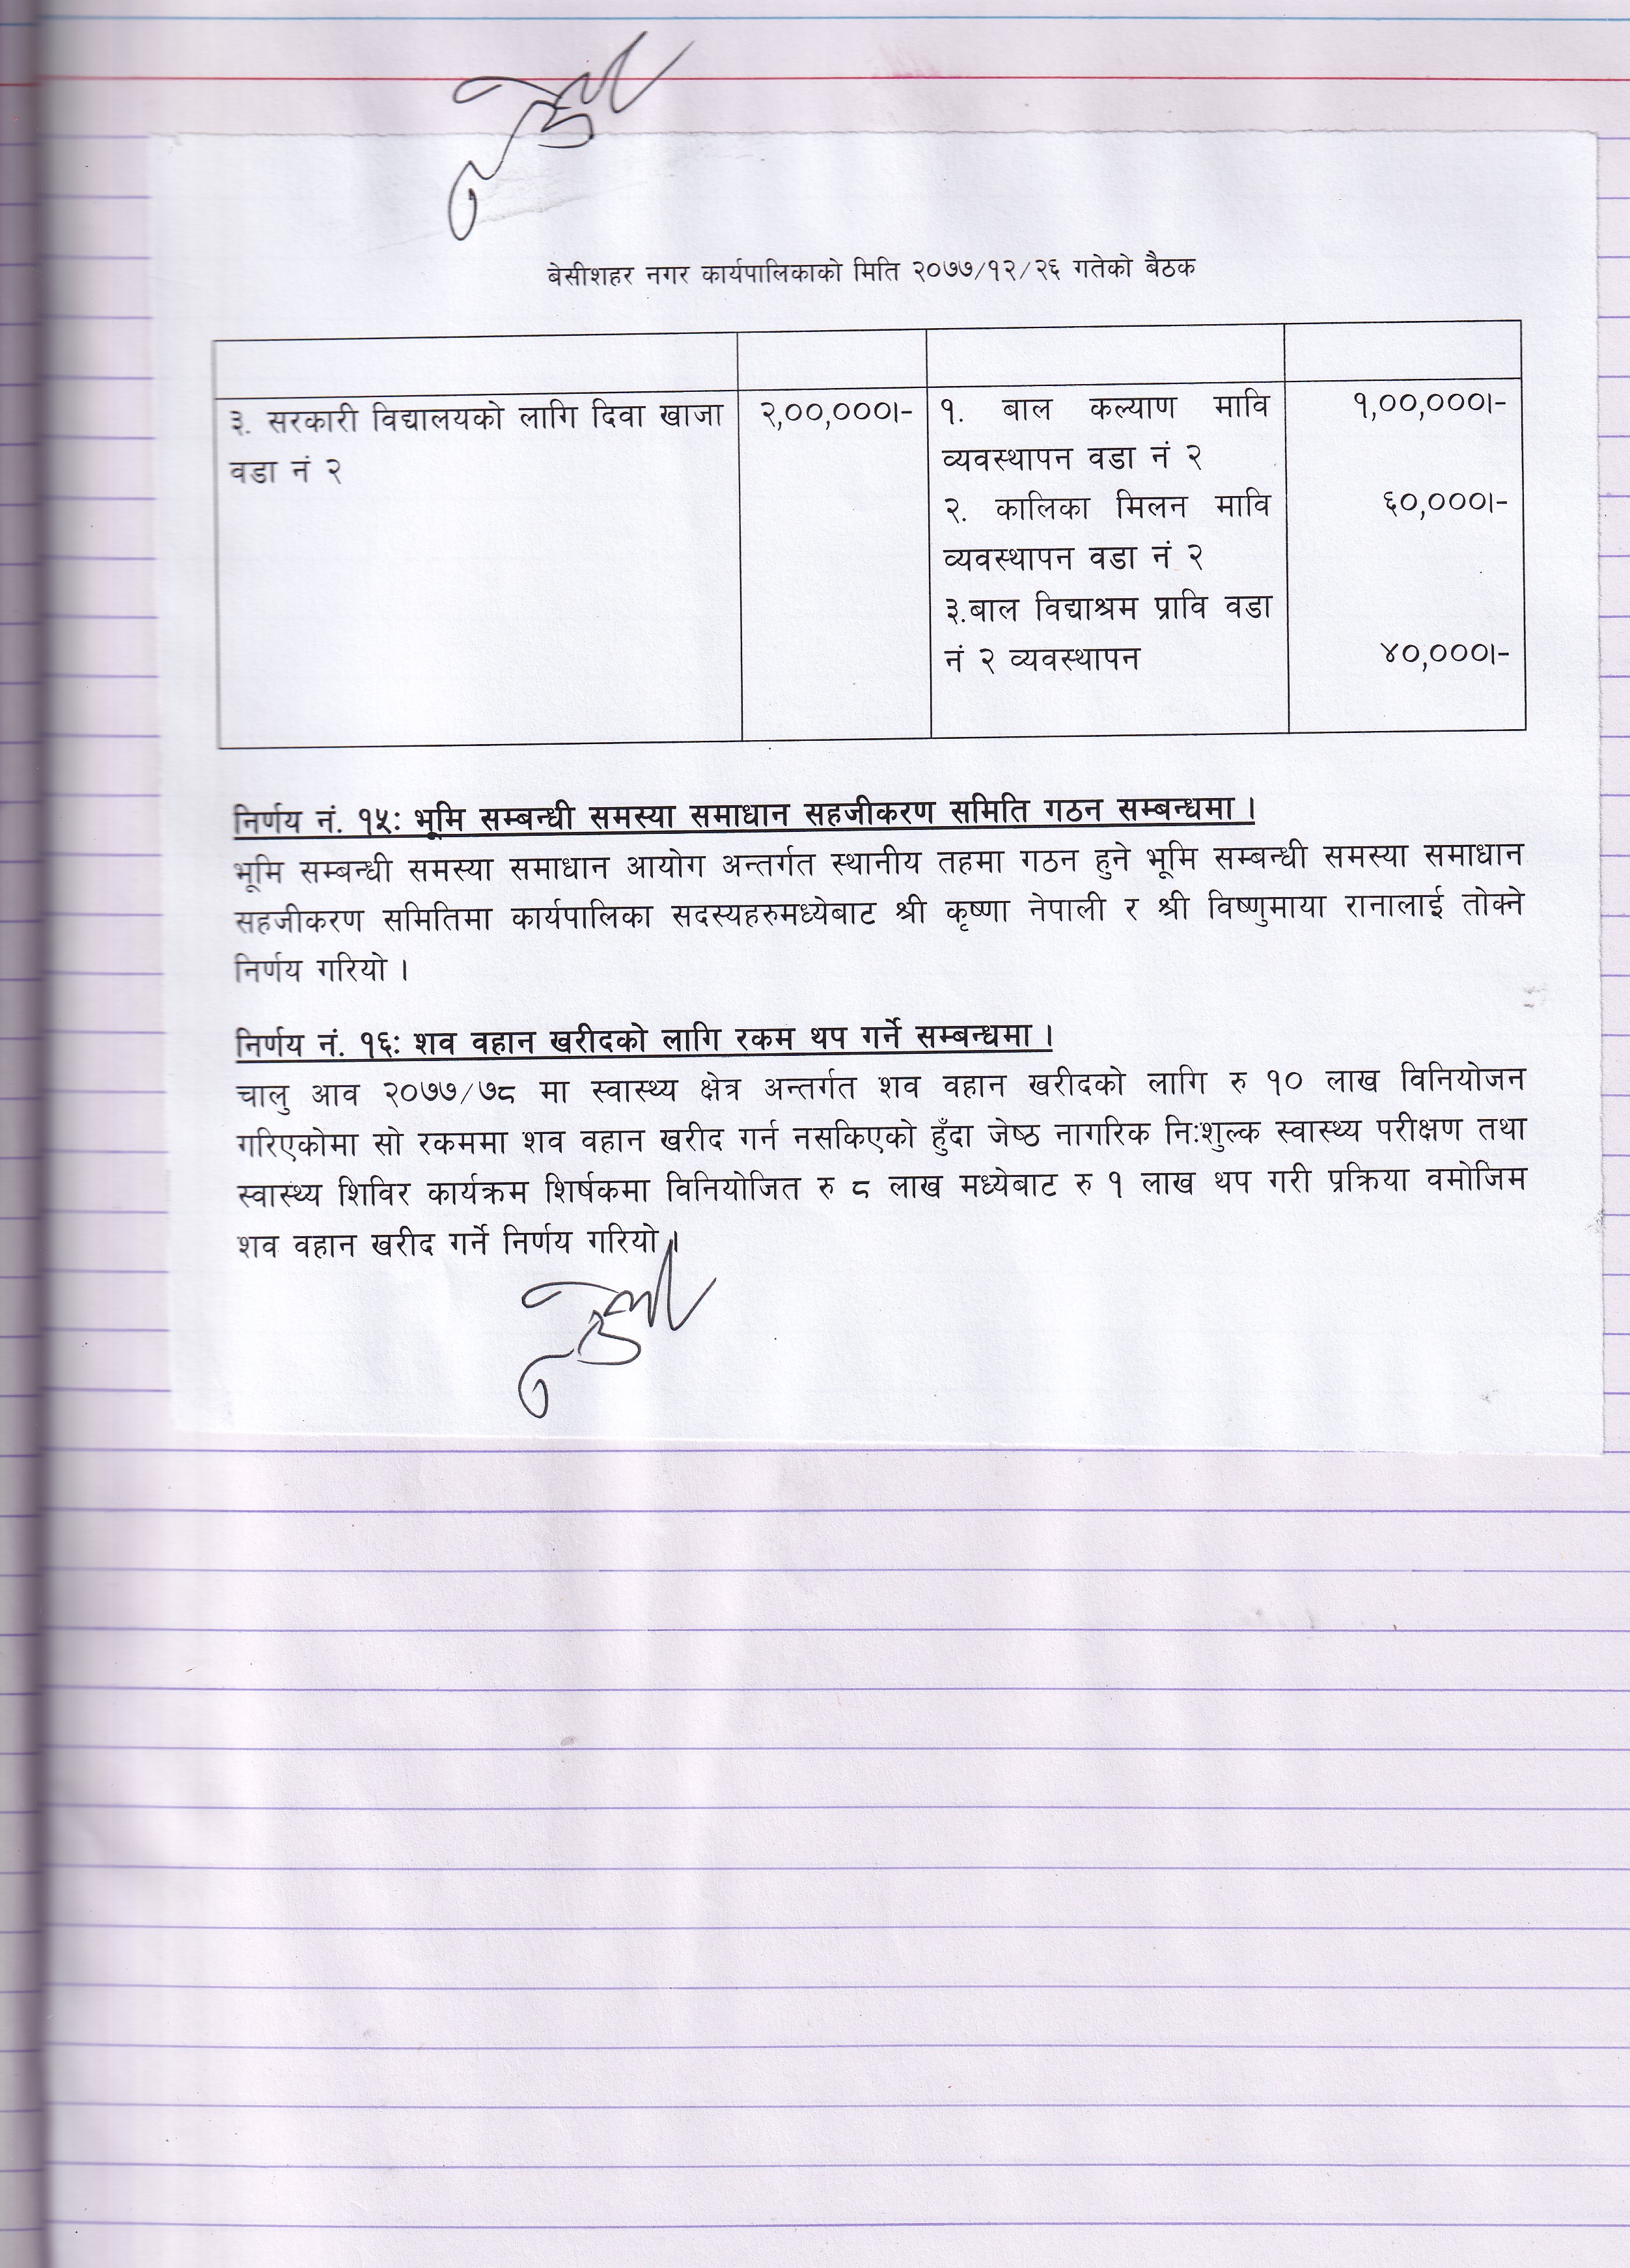 बेसीशहर नगर कार्यपालिकाको मिति २०७७/१२/२६ गतेको बैठक
३. सरकारी विद्यालयको लागि दिवा खाजा
वडा नं २
२,००,०००।-
१. बाल कल्याण मावि
व्यवस्थापन वडा नं २
२. कालिका मिलन मावि
व्यवस्थापन वडा नं २
३.बाल विद्याश्रम प्रावि वडा
नं २ व्यवस्थापन
१,००,०००।-
६०,०००।-
४०,०००।-
निर्णय नं. १५: भूमि सम्बन्धी समस्या समाधान सहजीकरण समिति गठन सम्बन्धमा ।
भूमि सम्बन्धी समस्या समाधान आयोग अन्तर्गत स्थानीय तहमा गठन हुने भूमि सम्बन्धी समस्या समाधान
सहजीकरण समितिमा कार्यपालिका सदस्यहरुमध्येबाट श्री कृष्णा नेपाली र श्री विष्णुमाया रानालाई तोक्ने
निर्णय गरियो ।
निर्णय नं. १६: शव वहान खरीदको लागि रकम थप गर्ने सम्बन्धमा ।
चालु आव २०७७/७८ मा स्वास्थ्य क्षेत्र अन्तर्गत शव वहान खरीदको लागि रु १० लाख विनियोजन
गरिएकोमा सो रकममा शव वहान खरीद गर्न नसकिएको हुँदा जेष्ठ नागरिक नि:शुल्क स्वास्थ्य परीक्षण तथा
स्वास्थ्य शिविर कार्यक्रम शिर्षकमा विनियोजित रु ८ लाख मध्येबाट रु १ लाख थप गरी प्रक्रिया वमोजिम
शव वहान खरीद गर्ने निर्णय गरियो ।